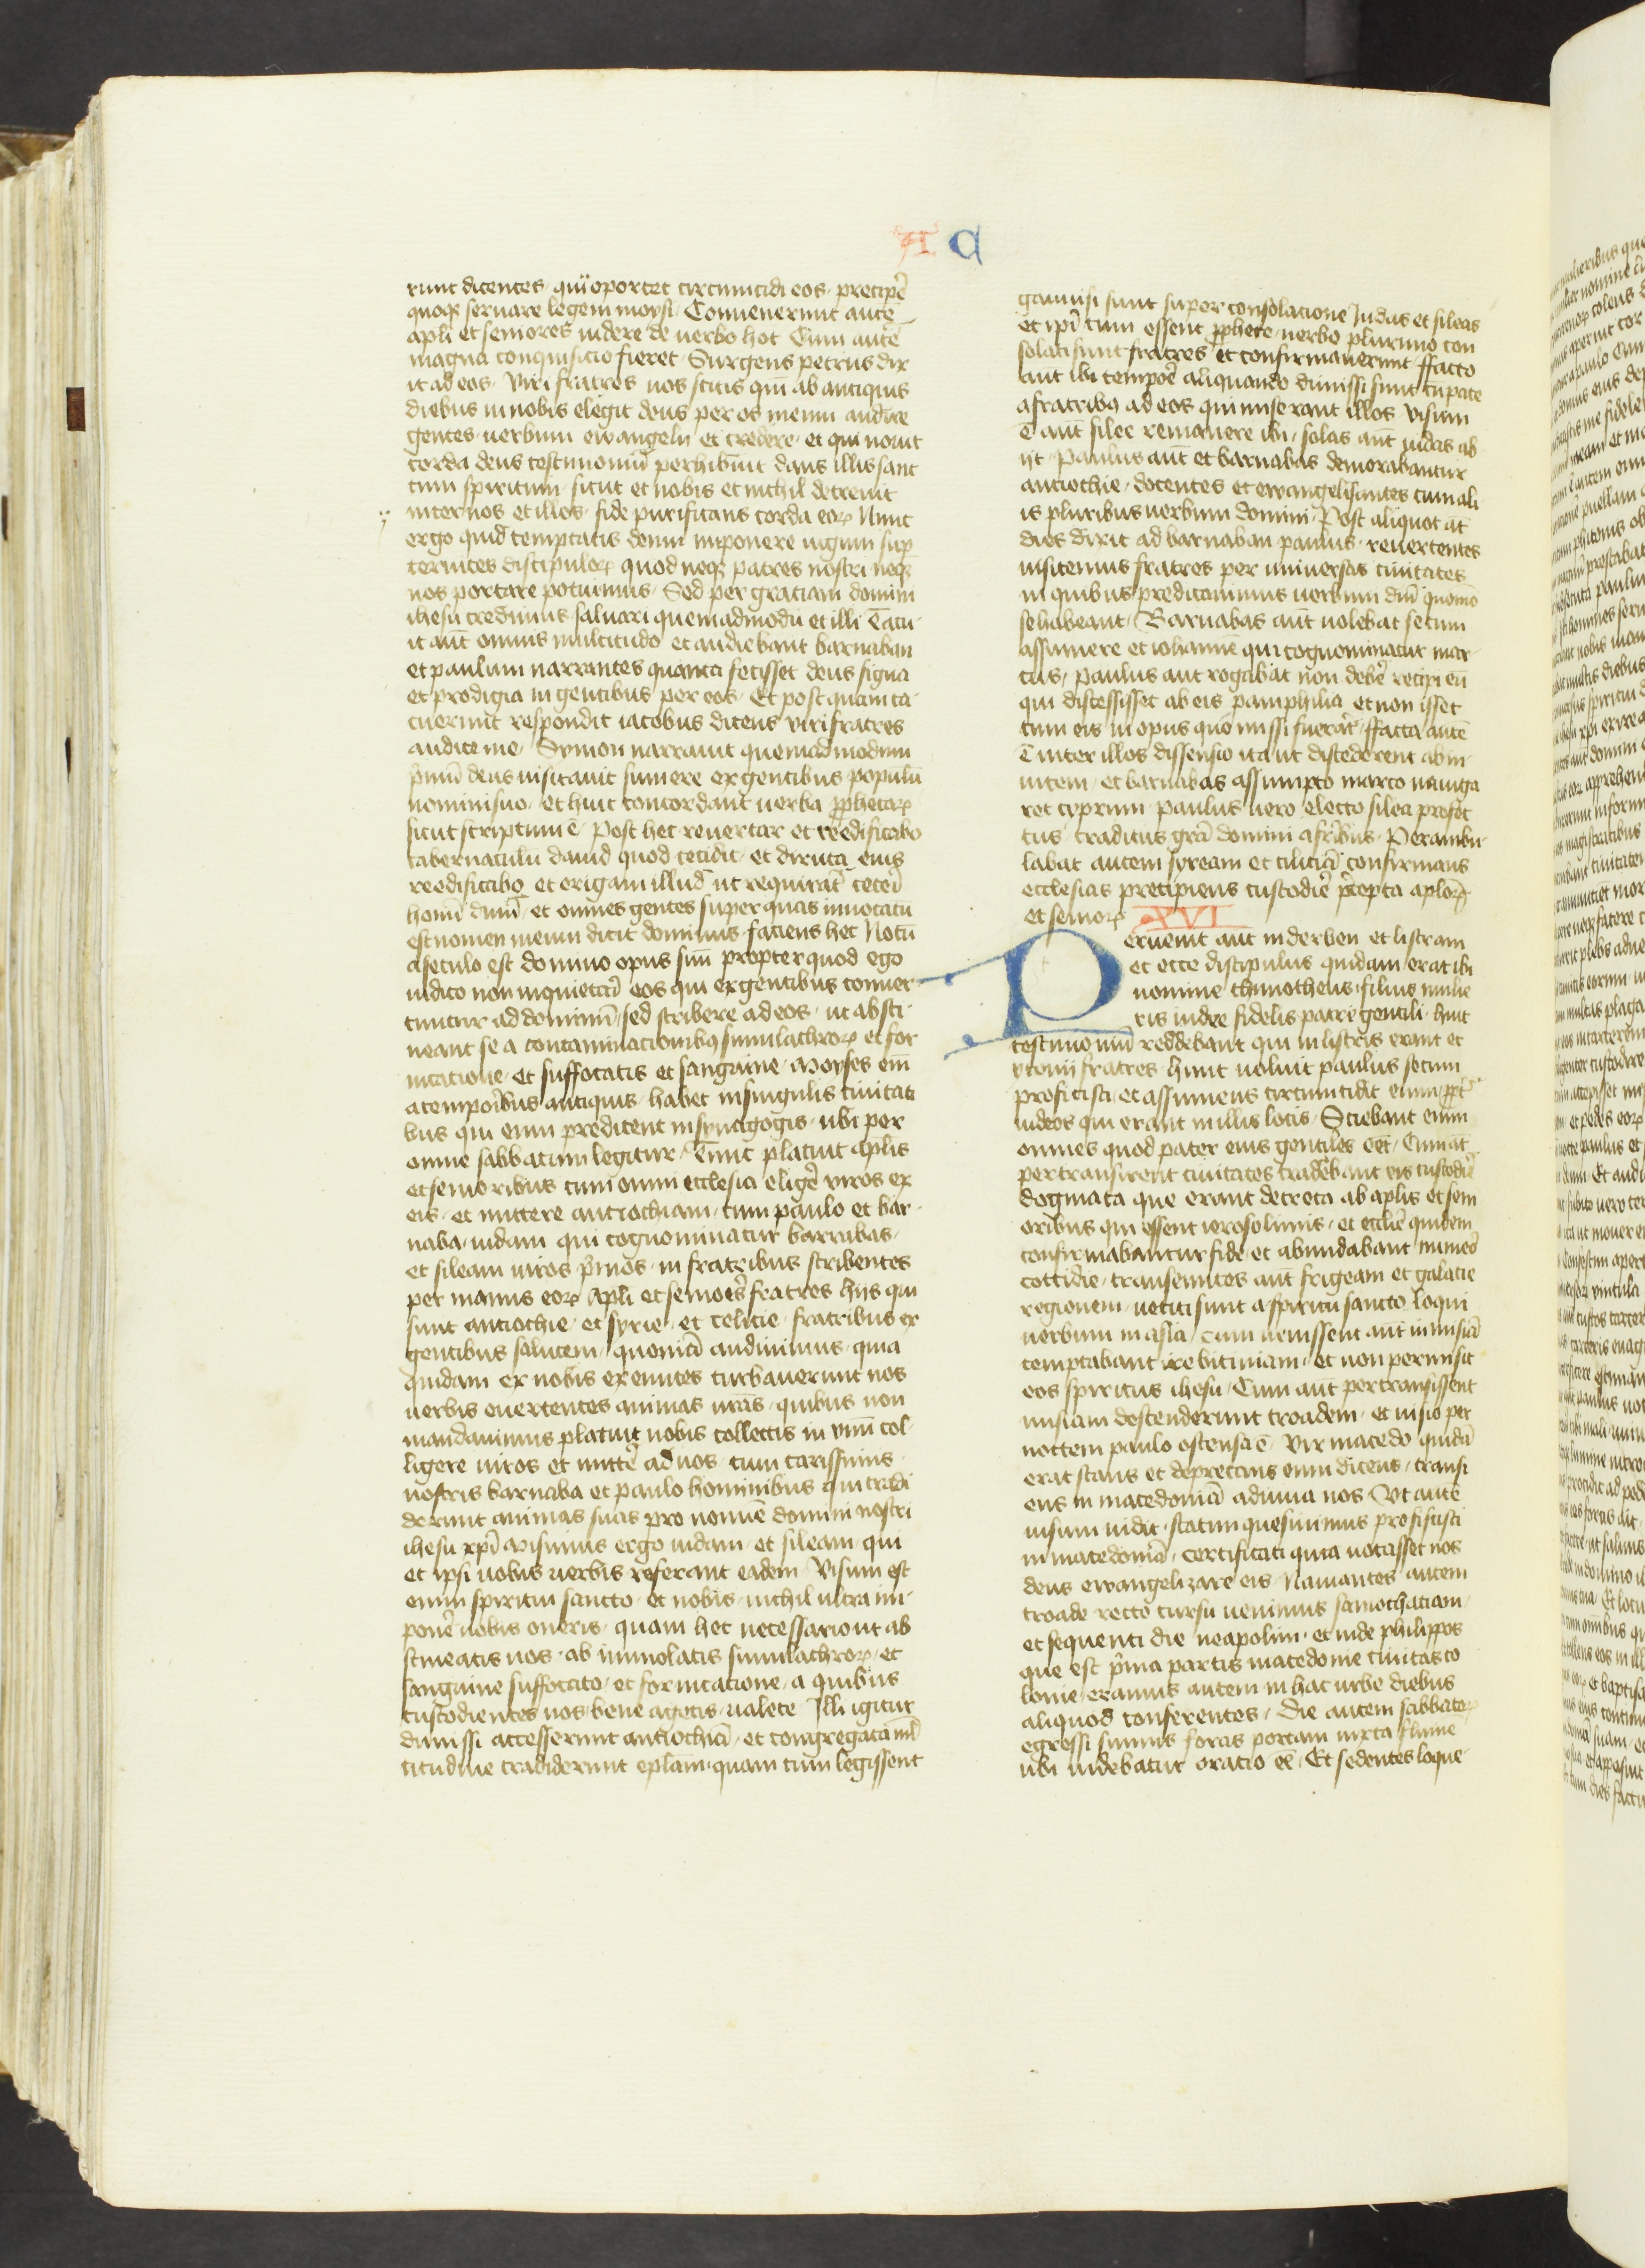 A C
runt dicentes qui oportet circumcidi eos precipẽ
quoqȝ seruare legem moysi Conuenerunt autẽ
apli et seniores uidere de uerbo hoc Cum autẽ
magna conquisicio fieret Surgens petrus dix
it ad eos Viri fratres uos scitis qm̃ ab antiquis
diebus in nobis elegit deus per os meum audire
gentes uerbum ewangelii et credere et qui nouit
corda deus testimoniũ perhibuit dans illis sanc
tum spiritum sicut et nobis et nichil decreuit
inter nos et illos fide purificans corda eoꝝ Nunc
ergo quid temptatis deum imponere iugum sup̱
ceruices discipuloꝝ quod neqȝ patres nostri neqȝ
nos portare potuimus Sed per graciam domini
ihesu credimus saluari quemadmodũ et illi Tacu
it aut̃ omnis multitudo et audiebant barnaban
et paulum narrantes quanta fecisset deus signa
et prodigia in gentibus per eos Et post quam ta
cuerunt respondit iacobus dicens viri fratres
audite me Symon narrauit quemadmodum
p̃mũ deus uisitauit sumere ex gentibus populũ
nomini suo et huic concordant uerba ꝓphetaꝝ
sicut scriptum ẽ Post hec reuertar et reedificabo
tabernaculũ dauid quod cecidit et diruta eius
reedificabo et erigam illud ut requirãt ceteri
homĩ dñm et omnes gentes super quas inuocatũ
est nomen meum dicit dominus faciens hec Notũ
a seculo est domino opus suũ propter quod ego
iudico non inquietari eos qui ex gentibus conuer
tuntur ad dominũ sed scribere ad eos ut absti
neant se a contaminacionibꝯ simulachroꝝ et for
nicatione et suffocatis et sanguine Moyses em̃
a temporibus antiquis habet in singulis ciuitati
bus qui eum predicent in synagogis ubi per
omne sabbatum legitur Tunc placuit aplis
et senioribus cum omni ecclesia eligẽ viros ex
eis et mittere antiochiam cum paulo et bar
naba iudam qui cognominatur barsabas
et sileam uiros p̃mos in fratribus scribentes
per manus eoꝝ Apli et seniores fratres hijs qui
sunt antiochie et syrie et celicie fratribus ex
gentibus salutem quoniã audiuimus quia
quidam ex nobis exeuntes turbauerunt uos
uerbis euertentes animas ur̃as quibus non
mandauimus placuit nobis collectis in vnũ col
ligere uiros et mittẽ ad uos cum carissimis
nostris barnaba et paulo hominibus qui tradi
derunt animas suas pro nomĩe domini nostri
ihesu xp̃i Misimus ergo iudam et sileam qui
et ipsi uobis uerbis referant eadem Visum est
enim spiritui sancto et nobis nichil ultra im
ponẽ uobis oneris quam hec necessario ut ab
stineatis uos ab immolatis simulachroꝝ et
sanguine suffocato et fornicacione a quibus
custodientes uos bene agetis ualete Illi igitur
dimissi accesserunt antiochiã et congregata ml̃
titudine tradiderunt eplam quam cum legissent
gauisi sunt super consolacione Judas et sileas
et ip̃i cum essent ꝓphete uerbo plurimo con
solati sunt fratres et confirmauerunt ffacto
aut̃ ibi tempoꝛẽ aliquando dimissi sunt cũ pace
a fratribꝯ ad eos qui miserant illos Visum
ẽ aut̃ silee remanere ibi solas aut̃ iudas ab
ijt Paulus aut̃ et barnabas demorabantur
antiochie docentes et ewangelisantes cum ali
is pluribus uerbum domini Post aliquot aut̃
dies dixit ad barnaban paulus reuertentes
uisitemus fratres per uniuersas ciuitates
in quibus predicauimus uerbum dñi quomõ
se habeant Barnabas aut̃ uolebat secum
assumere et iohannẽ qui cognominatur mar
cus Paulus aut̃ rogabat non debẽ recipi eũ
qui discessisset ab eis pamphilia et non isset
cum eis in opus quo missi fuerãt ffacta autẽ
ẽ inter illos dissensio ita ut discederent ab in
uicem et barnabas assumpto marco nauiga
ret cyprum Paulus uero electo silea profec
tus traditus gr̃a domini a fr̃ibus Perambu
labat autem syream et ciliciã confirmans
ecclesias precipiens custodiẽ p̃cepta aploꝝ
et senioꝝ XVI
Peruenit aut̃ in derben et listram
et ecce discipulus quidam erat ibi
nomine thimotheus filius mulie
ris iudee fidelis patre gentili huic
testimoniũ reddebant qui in listris erant et
yconii fratres hunc uoluit paulus secum
proficisci et assumens circumcidit eum ꝓpt̃
iudeos qui erant in illis locis Sciebant enim
omnes quod pater eius gentiles eẽt Cum aut̃
pertransirent ciuitates tradebant eis custodiẽ
dogmata que erant decreta ab aplis et seni
oribus qui essent ierosolimis et ecclĩe quidem
confirmabantur fide et abundabant numero
cottidie transeuntes aut̃ frigeam et galacie
regionem uetiti sunt a spiritu sancto loqui
uerbum in asia Cum uenissent aut̃ in misiã
temptabant ire bitiniam et non permisit
eos spiritus ihesu Cum aut̃ pertransissent
misiam descenderunt troadem et uisio per
noctem paulo ostensa ẽ Vir macedo quidã
erat stans et deprecans eum dicens transi
ens in macedoniã adiuua nos Vt autẽ
uisum uidit statim quesiuimus proficisci
in macedoniã certificati quia uocasset nos
deus ewangelizare eis Nauigantes autem
troade recto cursu uenimus samothaciam
et sequenti die neapolim et inde philippos
que est p̃ma partis macedonie ciuitas co
lonie eramus autem in hac urbe diebus
aliquod conferentes Die autem sabbatoꝝ
egressi sumus foras portam iuxta flumẽ
ubi uidebatur oratio eẽ Et sedentes loque